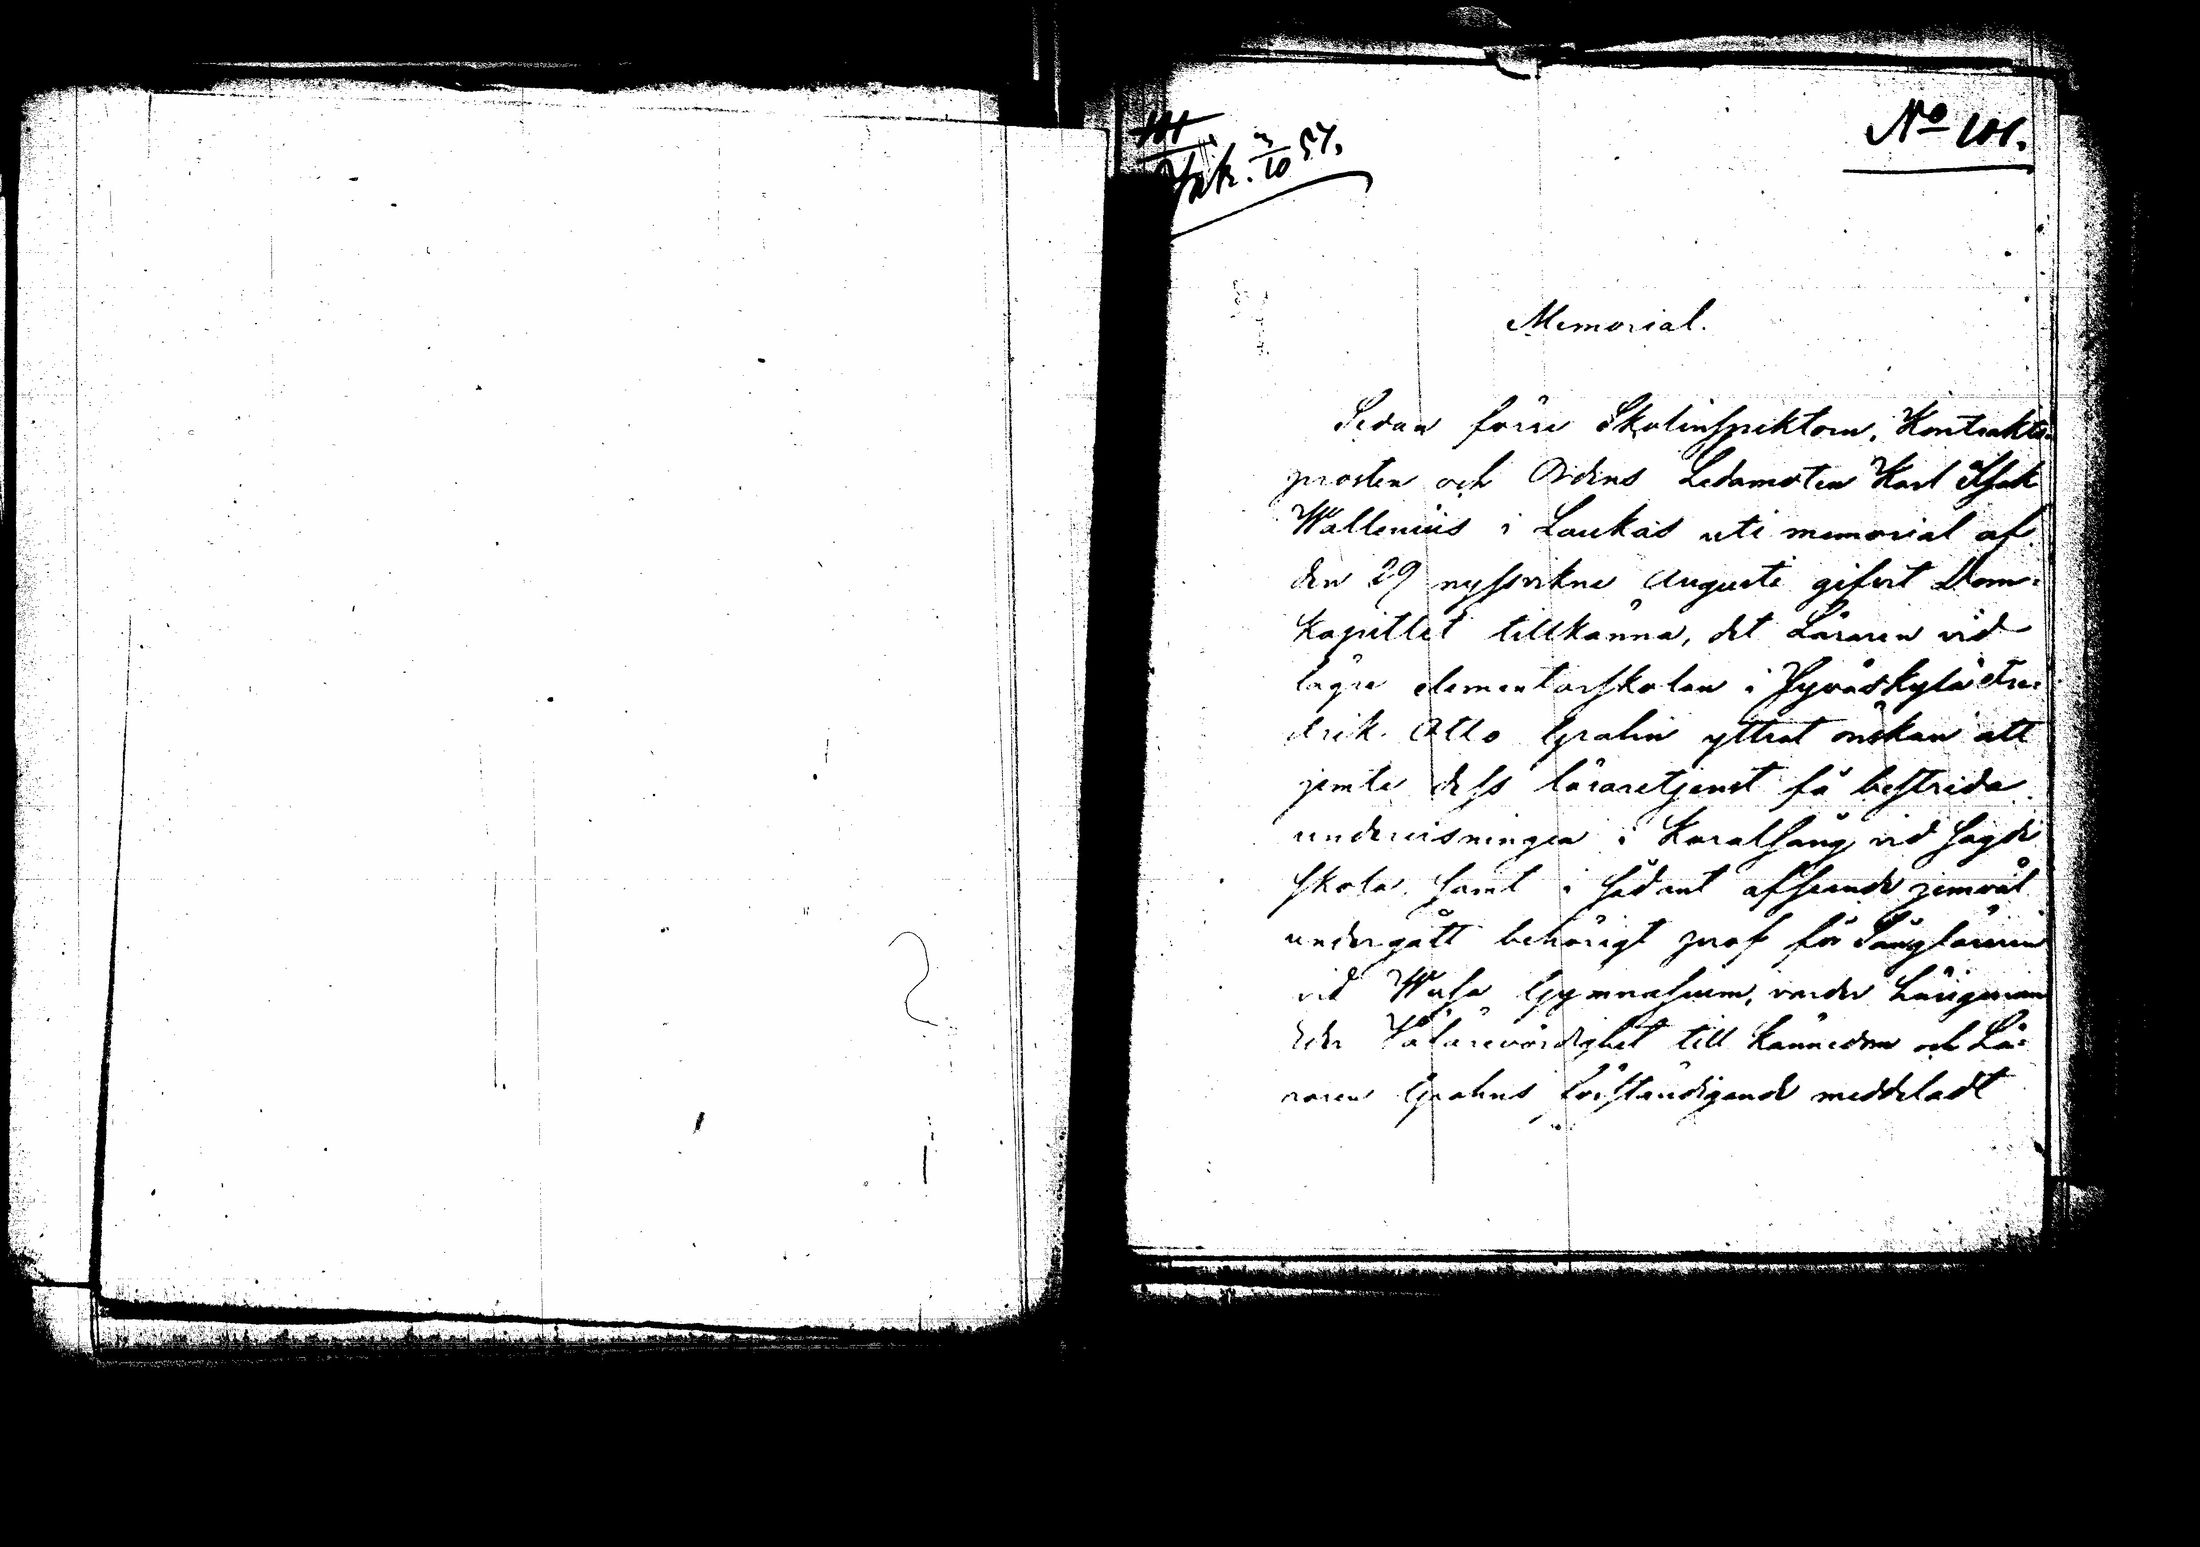 No 101.
3/10 57.
Memorial.
Sedan förre Skolinspektorn, Kontrakts-
prosten och Ordens Ledamoten Karl Isak
Wallenius i Laukas uti memorial af
den 29 nyssvikne Augusti gifvit Dom-
kapitlet tillkänna, det Läraren vid
lägre elementarskolan i Jyväskylä Fre-
drik Otto Grahn yttrat önskan att
jemte dess läraretjenst få bestrida
undervisningen i Koralsång vid sagde
skola, samt i sådant afseende jemväl
undergått behörigt prof för Sångläraren
vid Wasa Gymnasium, varder
Eder Välärevördighet till kännedom och Lä-
raren Grahns förständigande meddeladt